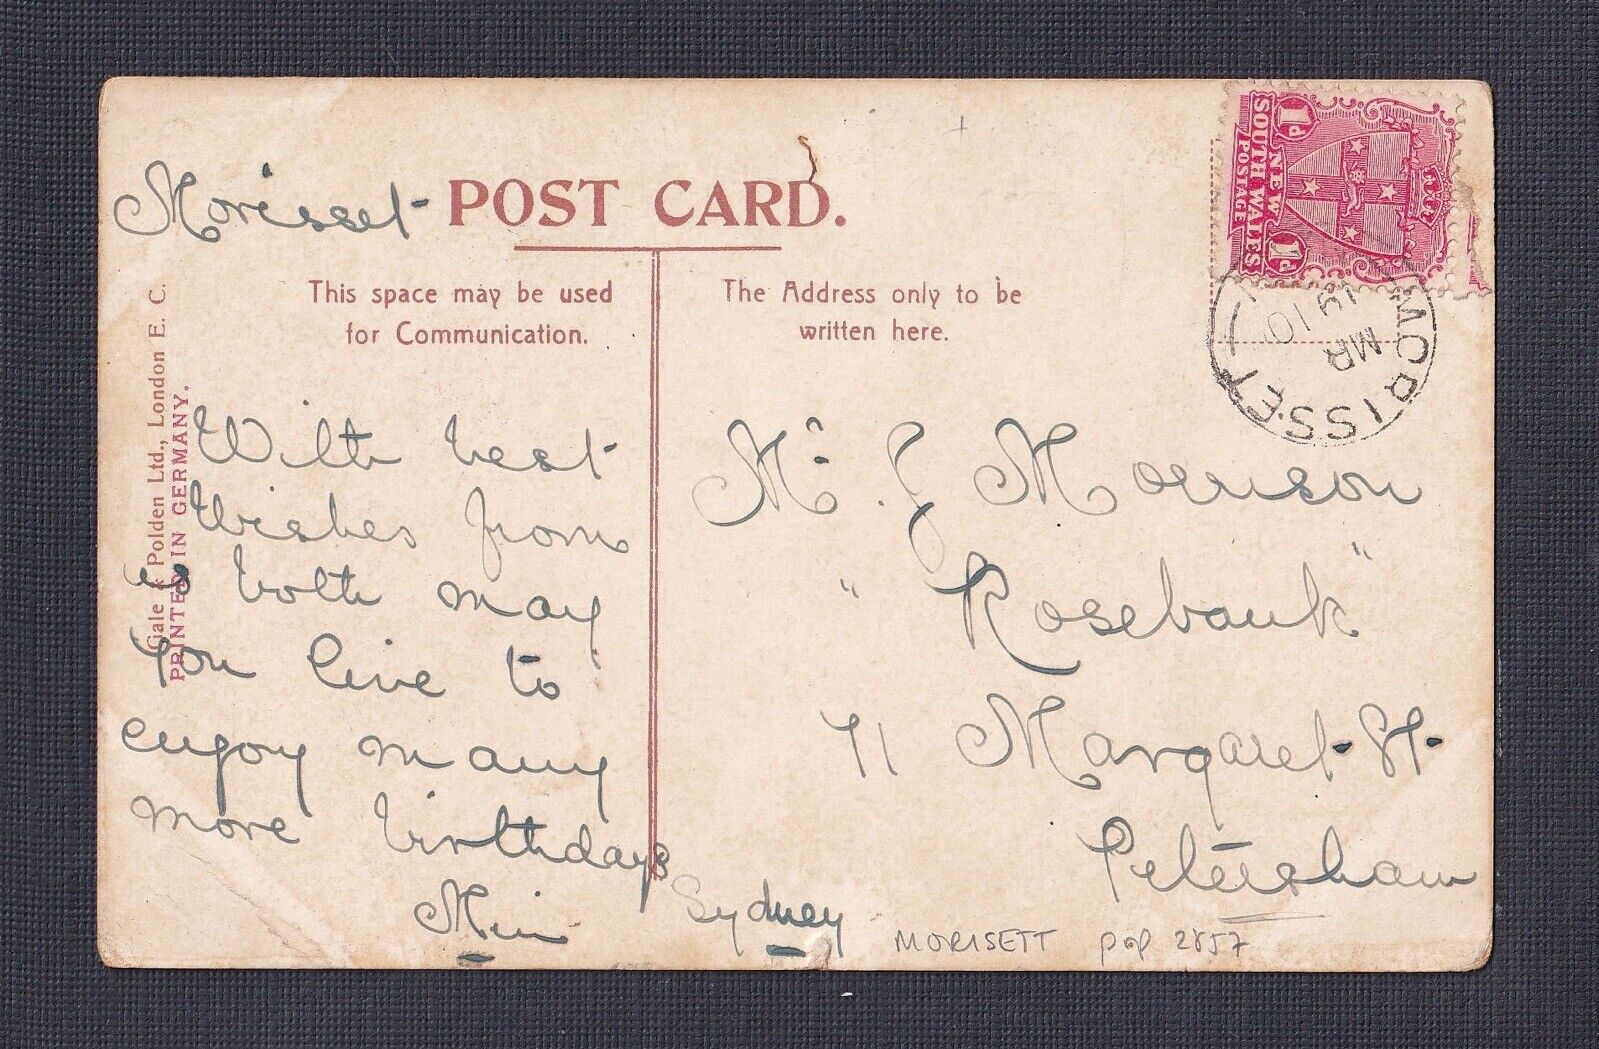 Morisset
POST CARD.
This space may be used
for Communication.
The Address only to be
written here.
Gale & Polden Ltd., London E. C.
PRINTED IN GERMANY.
1d NEW 1d
SOUTH WALES
POSTAGE
MORISSET
19 10
MR
With best
Wishes from
us both may
You live to
enjoy many
more birthdays
Min
Mr. J Morrison
"Rosebank"
71 Margaret St
Petersham
Sydney
MORISETT pop 2857